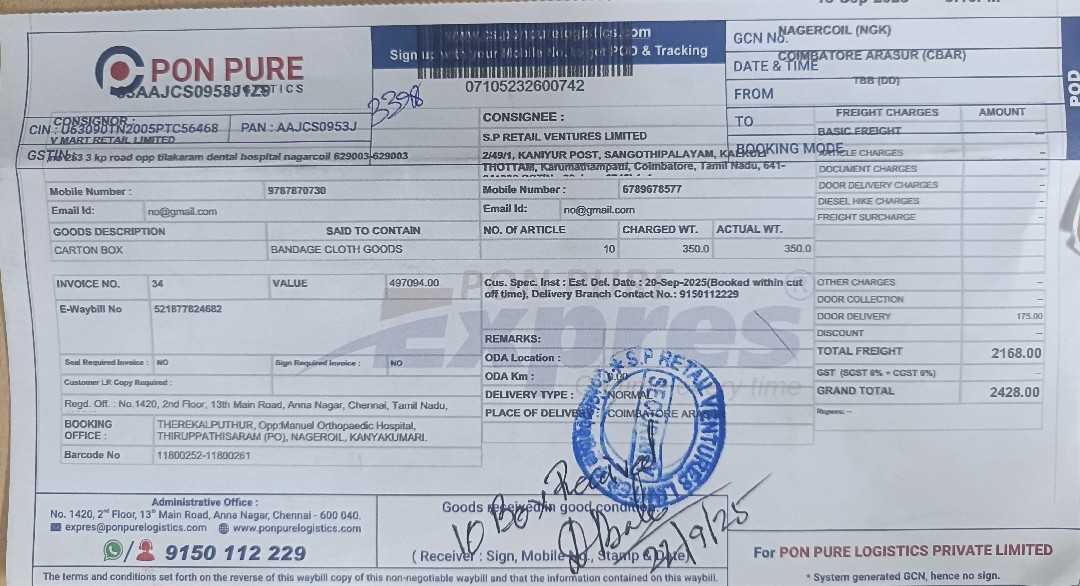 www.cs.ponpurelogistics.com
Sign up with your Mobile No. to get POD & Tracking
PON PURE
LOGISTICS
07105232600742
3398
GCN No.
NAGERCOIL (NGK)
COIMBATORE ARASUR (CBAR)
DATE & TIME
TBB (DD)
FROM
TO
BOOKING MODE
POD
CIN : U63090TN2005PTC56468 PAN : AAJCS0953J
GSTIN :
CONSIGNOR :
V MART RETAIL LIMITED
no 263 3 kp road opp tilakaram dental hospital nagarcoil 629003-629003
CONSIGNEE :
S.P RETAIL VENTURES LIMITED
2/49/1, KANIYUR POST, SANGOTHIPALAYAM,
THOTTAM, Karumathampatti, Coimbatore, Tamil Nadu, 641-
Mobile Number : 9787870730
Mobile Number : 6789678577
Email Id: no@gmail.com
Email Id: no@gmail.com
GOODS DESCRIPTION SAID TO CONTAIN NO. OF ARTICLE CHARGED WT. ACTUAL WT.
CARTON BOX BANDAGE CLOTH GOODS 10 350.0 350.0
INVOICE NO. 34 VALUE 497094.00
E-Waybill No 521877824682
Cus. Spec. Inst : Est. Del. Date : 20-Sep-2025(Booked within cut
off time), Delivery Branch Contact No.: 9150112229
PON PURE
Expres
REMARKS:
ODA Location :
ODA Km : 0.00
DELIVERY TYPE : NORMAL
PLACE OF DELIVERY COIMBATORE ARASUR
Seal Required Invoice : NO Sign Required Invoice : NO
Customer LR Copy Required :
Regd. Off. : No.1420, 2nd Floor, 13th Main Road, Anna Nagar, Chennai, Tamil Nadu,
BOOKING OFFICE : THEREKALPUTHUR, Opp:Manuel Orthopaedic Hospital,
THIRUPPATHISARAM (PO), NAGEROIL, KANYAKUMARI.
Barcode No 11800252-11800261
FREIGHT CHARGES AMOUNT
BASIC FREIGHT –
ARTICLE CHARGES –
DOCUMENT CHARGES –
DOOR DELIVERY CHARGES –
DIESEL HIKE CHARGES –
FREIGHT SURCHARGE –
OTHER CHARGES –
DOOR COLLECTION –
DOOR DELIVERY 175.00
DISCOUNT –
TOTAL FREIGHT 2168.00
GST (SGST 6% + CGST 6%) –
GRAND TOTAL 2428.00
Rupees: --
S.P RETAIL VENTURES
SECURITY
Administrative Office :
No. 1420, 2nd Floor, 13th Main Road, Anna Nagar, Chennai - 600 040.
expres@ponpurelogistics.com www.ponpurelogistics.com
9150 112 229
Goods received in good condition.
10 Box Received
22/9/25
( Receiver : Sign, Mobile No., Stamp & Date)
For PON PURE LOGISTICS PRIVATE LIMITED
* System generated GCN, hence no sign.
The terms and conditions set forth on the reverse of this waybill copy of this non-negotiable waybill and that the information contained on this waybill.